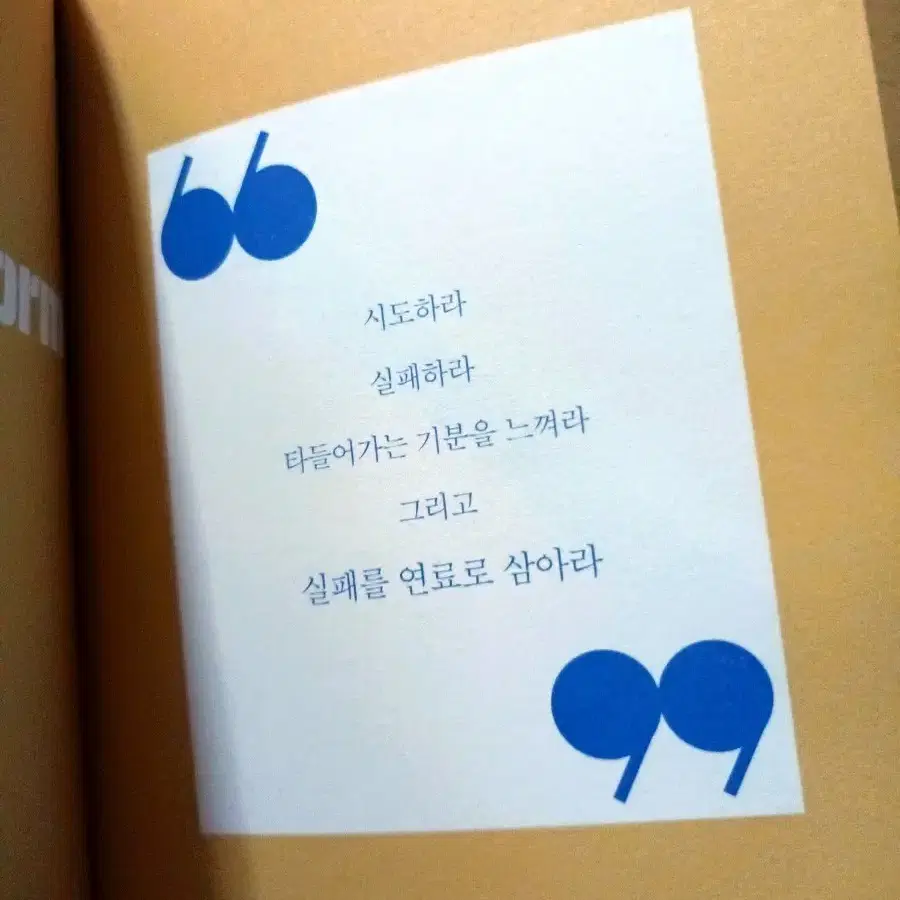 시도하라
실패하라
타들어가는 기분을 느껴라
그리고
실패를 연료로 삼아라